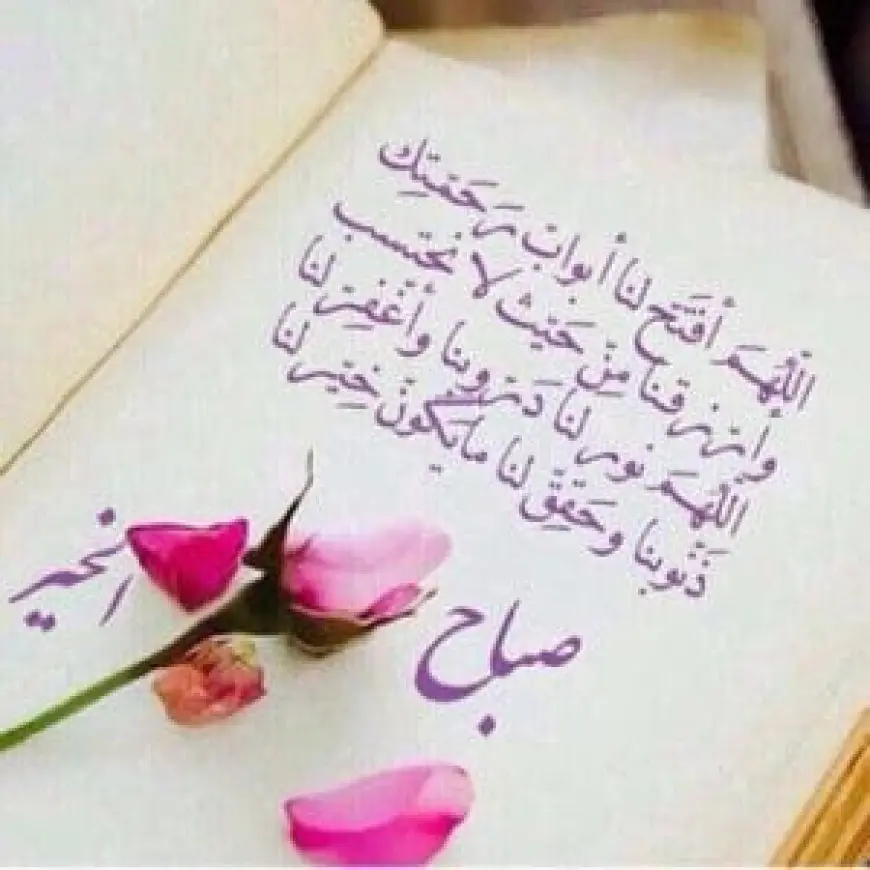 اللّهمَّ أفتَح لنا أبواب رَحمَتِك
وأرزقنا مِن حَيثُ لا نحتسب
اللّهمَّ نور لنا دَروبنا وأغْفِر لنا
ذَنوبنا وحَقِق لنا مايَكون خَير لنا
صباح الخير